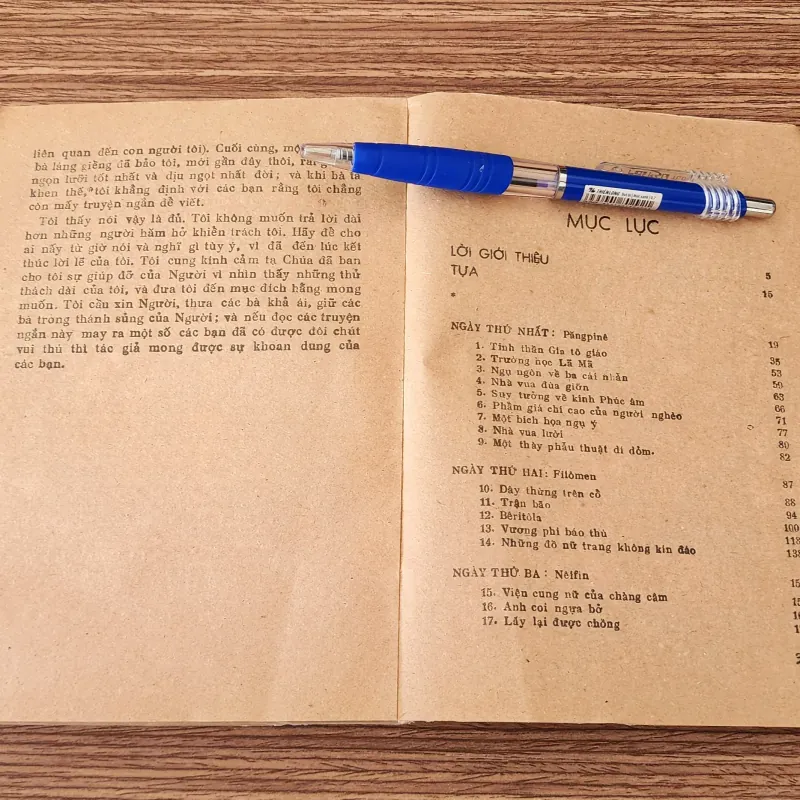 liên quan đến con người tôi). Cuối cùng, mộ
bà láng giềng đã bảo tôi, mới gần đây thôi, rằng
ngọn lưỡi tốt nhất và dịu ngọt nhất đời; và khi bà ta
khen thế, tôi khẳng định với các bạn rằng tôi chẳng
còn mấy truyện ngắn để viết.
Tôi thấy nói vậy là đủ. Tôi không muốn trả lời dài
hơn những người hăm hở khiển trách tôi. Hãy để cho
ai nấy từ giờ nói và nghĩ gì tùy ý, vì đã đến lúc kết
thúc lời lẽ của tôi. Tôi cung kính cảm tạ Chúa đã ban
cho tôi sự giúp đỡ của Người vì nhìn thấy những thử
thách dài của tôi, và đưa tôi đến mục đích hằng mong
muốn. Tôi cầu xin Người, thưa các bà khả ái, giữ các
bà trong thánh sủng của Người; và nếu đọc các truyện
ngắn này may ra một số các bạn đã có được đôi chút
vui thú thì tác giả mong được sự khoan dung của
các bạn.
THIENLONG
MỤC LỤC
LỜI GIỚI THIỆU 5
TỰA 15
*
NGÀY THỨ NHẤT: Păngpinê 19
1. Tinh thần Gia tô giáo 35
2. Trường học Lã Mã 53
3. Ngụ ngôn về ba cái nhẫn 59
4. Nhà vua đùa giỡn 63
5. Suy tưởng về kinh Phúc âm 66
6. Phẩm giá chỉ cao của người nghèo 71
7. Một bích họa ngụ ý 77
8. Nhà vua lười 80
9. Một thày phẫu thuật dí dỏm. 82
NGÀY THỨ HAI: Filômen 87
10. Dây thừng trên cổ 88
11. Trận bão 94
12. Bêritôla 100
13. Vương phi báo thù 118
14. Những đồ nữ trang không kín đáo 138
NGÀY THỨ BA: Nêifin 15
15. Viện cung nữ của chàng câm 15
16. Anh coi ngựa bở 16
17. Lấy lại được chồng 1